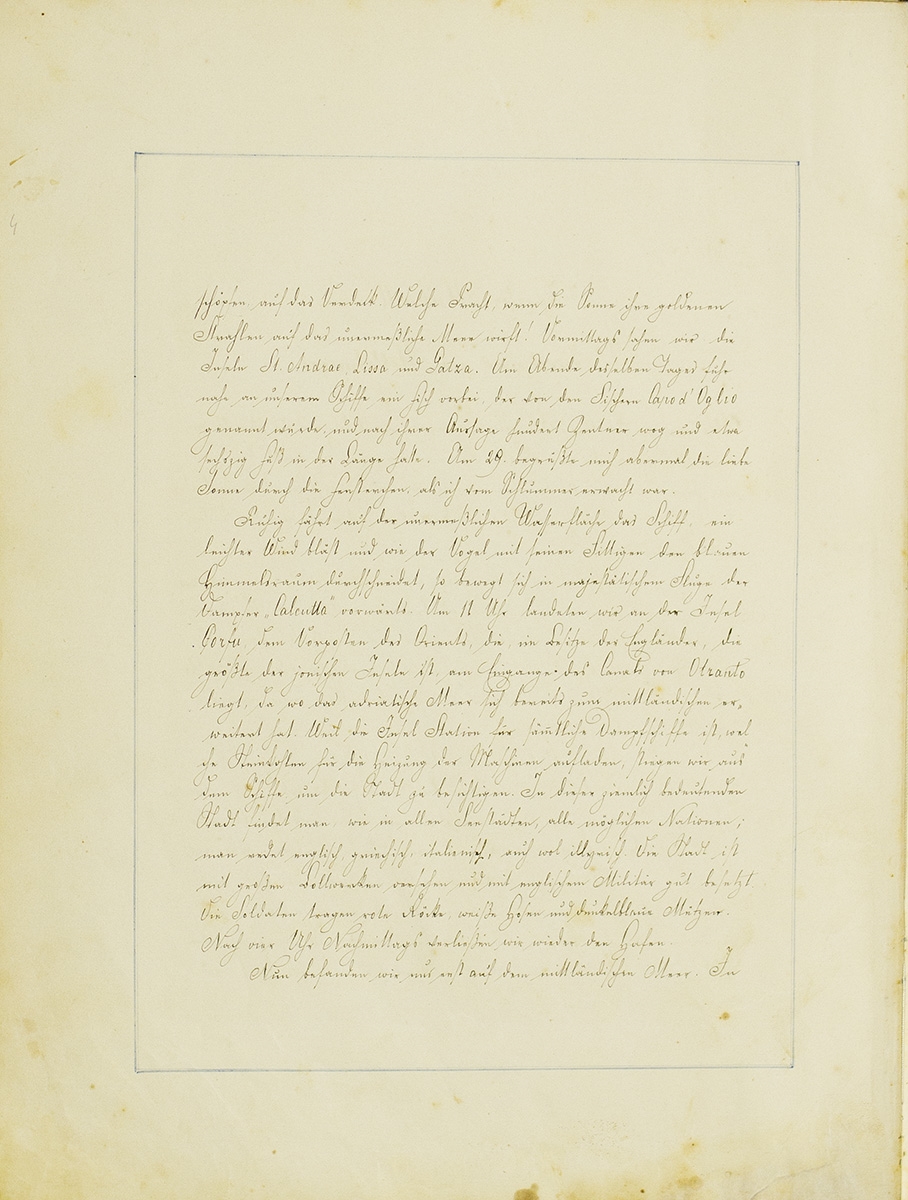 4
schöpfen, auf das Verdeck. Welche Pracht, wenn die Sonne ihre goldenen
Strahlen auf das unermeßliche Meer wirft! Vormittags sahen wir die
Inseln St. Andrae, Lissa und Galza. Am Abende desselben Tages fuhr
nahe an unserem Schiffe ein Fisch vorbei, der von den Fischern Capo d' Oglio
genannt wurde, und nach ihrer Aussage hundert Zentner wog und etwa
sechszig Fuß in der Länge hatte. Am 29. begrüßte mich abermal die liebe
Sonne durch die Fensterchen, als ich vom Schlummer erwacht war.
Ruhig fährt auf der unermeßlichen Wasserfläche das Schiff, ein
leichter Wind bläst und wie der Vogel mit seinen Fittigen den blauen
Himmelsraum durchschneidet, so bewegt sich in majestätischem Fluge der
Dampfer „Calcutta" vorwärts. Um 11 Uhr landeten wir an der Insel
Corfu, dem Vorposten des Orients, die, im Besitze der Engländer, die
größte der jonischen Inseln ist, am Eingange des Canals von Otranto
liegt, da wo das adriatische Meer sich bereits zum mittländischen er„
weitert hat. Weil die Insel Station für sämtliche Dampfschiffe ist, wel
che Steinkohlen für die Heizung der Maschinen aufladen, stiegen wir aus
dem Schiffe um die Stadt zu besichtigen. In dieser ziemlich bedeutenden
Stadt findet man, wie in allen Seestädten, alle möglichen Nationen;
man redet englisch, griechisch, italienisch, auch wol illyrisch. Die Stadt ist
mit großen Bollwerken versehen und mit englischem Militär gut besetzt.
Die Soldaten tragen rote Röcke, weiße Hosen und dunkelblaue Mützen.
Nach vier Uhr Nachmittags verließen wir wieder den Hafen.
Nun befanden wir uns erst auf dem mittländischen Meer. In